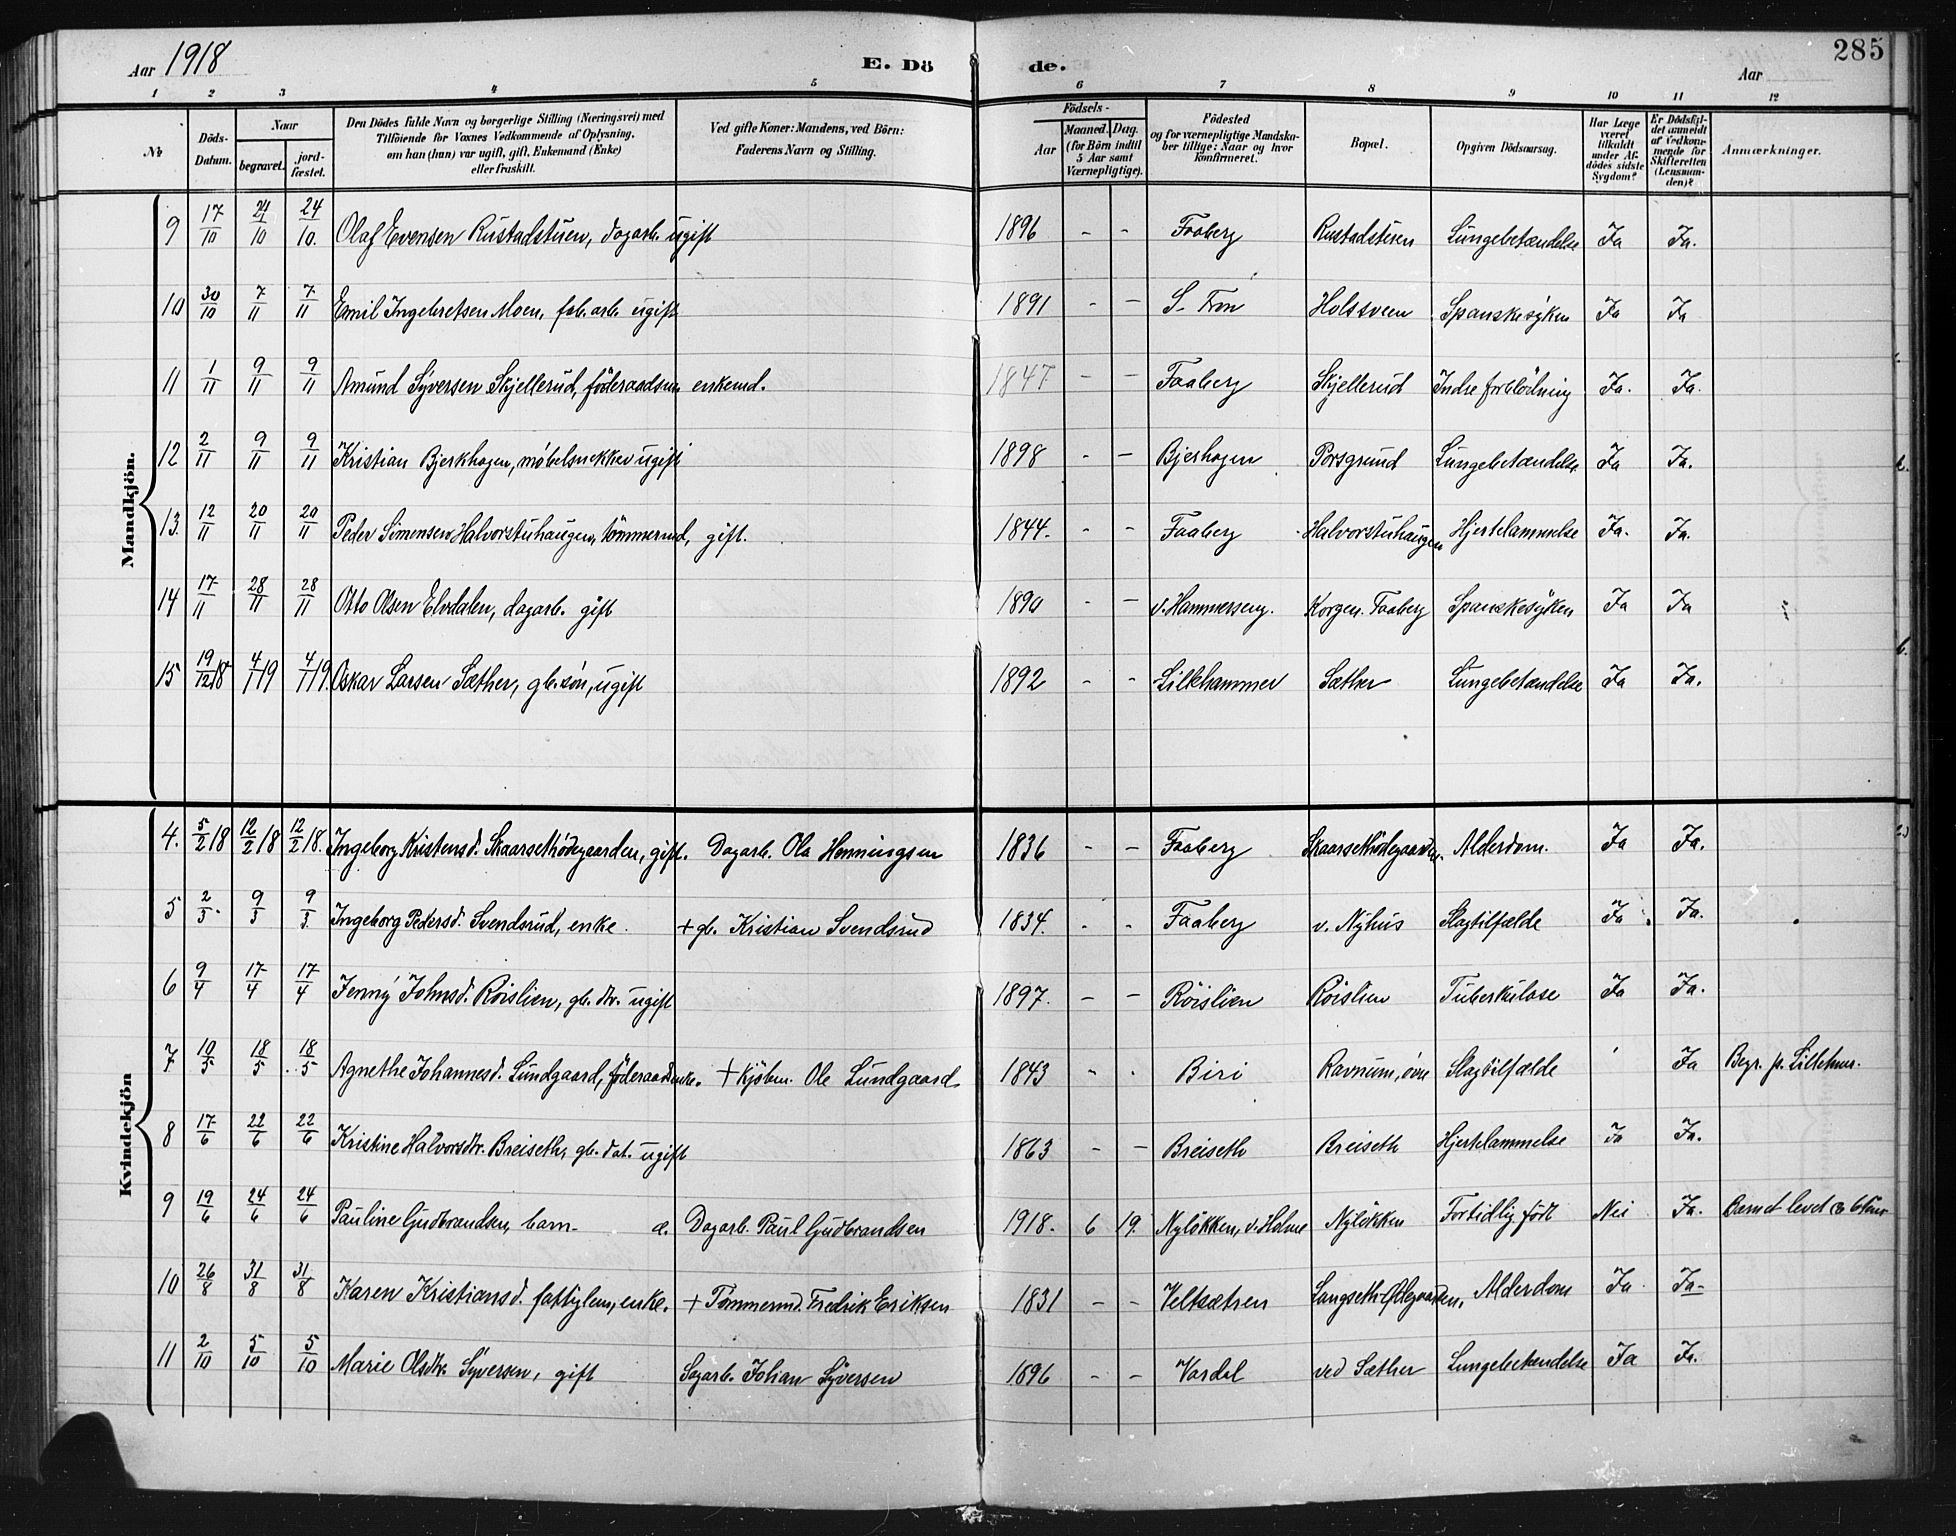 Aar 1918 E. Dö de. Aar 285
1 2 3 4 5 6 7 8 9 10 11 12
No. Döds-Datum. Naar begravet. jord-fæstet. Den Dödes fulde Navn og borgerlige Stilling (Næringsvei) med Tilföiende for Voxnes Vedkommende af Oplysning, om han (hun) var ugift, gift, Enkemand (Enke) eller fraskilt. Ved gifte Koner: Mandens, ved Börn: Faderens Navn og Stilling. Födsels- Aar Maaned. Dag. (for Börn indtil 5 Aar samt Værnepligtige). Födested og for værnepligtige Mandska-ber tillige: Naar og hvor konfirmeret. Bopæl. Opgiven Dödsaarsag. Har Læge været tilkaldt under Af-dödes sidste Sygdom? Er Dödsfal-det anmeldt af Vedkom-mende for Skifteretten (Lensman-den)? Anmærkninger.
Mandkjön.
9 17/10 24/10 24/10. Olaf Evensen Rustadstuen, dagarb. ugift 1896 - - Faaberg Rustadstuen Lungebetændelse Ja Ja.
10 30/10 7/11 7/11 Emil Ingebretsen Moen, fab.arb. ugift 1891 - - S. Fron Holssveen Spanskesyken Ja Ja
11 1/11 9/11 9/11 Amund Syversen Skjellerud, föderaadsm enkemd. 1847 - - Faaberg Skjellerud Indre forblödning Ja. Ja.
12 2/11 9/11 9/11 Kristian Bjerkhagen, möbelsnekker ugift 1898 - - Bjerhagen Porsgrund Lungebetændelse Ja Ja.
13. 12/11 20/11 20/11 Peder Simensen Halvorstuhaugen, tömmermd, gift. 1844. - - Faaberg Halvorstuhaugen Hjertelammelse Ja. Ja.
14 17/11 28/11 28/11 Otto Olsen Elvdalen, dagarb. gift 1890 - - v. Hammerseng. Korgen. Faaberg Spanskesyken Ja Ja
15 19/12 18 4/1 19 4/1 19. Oskar Larsen Sæther, gb.søn, ugift 1892 - - Lillehammer Sæther Lungebetændelse Ja Ja.
Kvindekjön
4. 5/2 18 12/2 18 12/2 18. Ingeborg Kristensd. Skaarsethödegaarden, gift. Dagarb. Ola Henningsen 1836 - - Faaberg Skaarsethödegaarden. Alderdom. Ja Ja.
5 2/3. 9/3 9/3. Ingeborg Pedersd. Svendsrud, enke. + gb. Kristian Svendsrud 1834. - - Faaberg v. Nyhus Slagtilfælde Ja Ja.
6 9/4 17/4 17/4 Jenny Johnsd. Röislien, gb. dtr. ugift 1897. - - Röislien Röislien Tuberkulose Ja Ja.
7 10/5 18/5 18/5 Agnethe Johannesd. Lundgaard, föderaadsenke. + Kjöbm. Ole Lundgaard 1843 - - Biri Ravnum, övre Slagtilfælde Ja Begr. p. Lillehmr.
8 17/6 22/6 22/6 Kristine Halvorsdtr. Breiseth, gb. dat. ugift 1863 - - Breiseth Breiseth Hjertelammelse Ja Ja.
9 19/6 24/6 24/6 Pauline Gudbrandsen, barn æ. Dagarb. Paul Gudbrandsen 1918. 6 19. Nylökken, v. Holme Nylökken Fortidlig födt Nei Ja. Barnet levet
10 26/8 31/8 31/8 Karen Kristiansd. fattiglem, enke. + Tömmermd. Fredrik Eriksen 1831 - - Veltsætren Langseth-Ödegaarden. Alderdom Ja Ja-
11 2/10 5/10 5/10 Marie Olsdtr. Syversen, gift Sagarb. Johan Syversen 1896 - - Vardal ved Sæther Lungebetændelse Ja Ja.